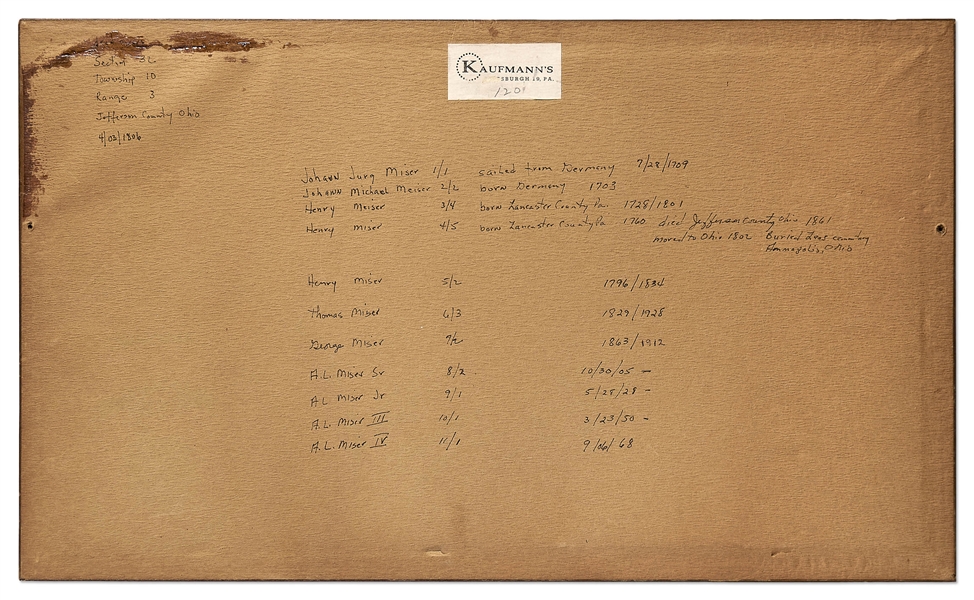 KAUFMANN'S
SBURGH 19, PA.
1201
Section 32
Township 10
Range 3
Jefferson County Ohio
4/02/1806
Johann Jurg Miser 1/1 sailed from Germany 7/28/1709
Johann Michael Meiser 2/2 born Germany 1703
Henry Meiser 3/4 born Lancaster County Pa. 1728/1801
Henry Miser 4/5 born Lancaster County Pa 1760 died Jefferson County Ohio 1861
moved to Ohio 1802 Buried
Annapolis, Ohio
Henry Miser 5/2 1796/1834
Thomas Miser 6/3 1829/1928
George Miser 7/2 1863/1912
A.L. Miser Sr 8/2 10/30/05 -
A L Miser Jr 9/1 5/28/28 -
A.L. Miser III 10/1 3/23/50 -
A.L. Miser IV 11/1 9/06/68